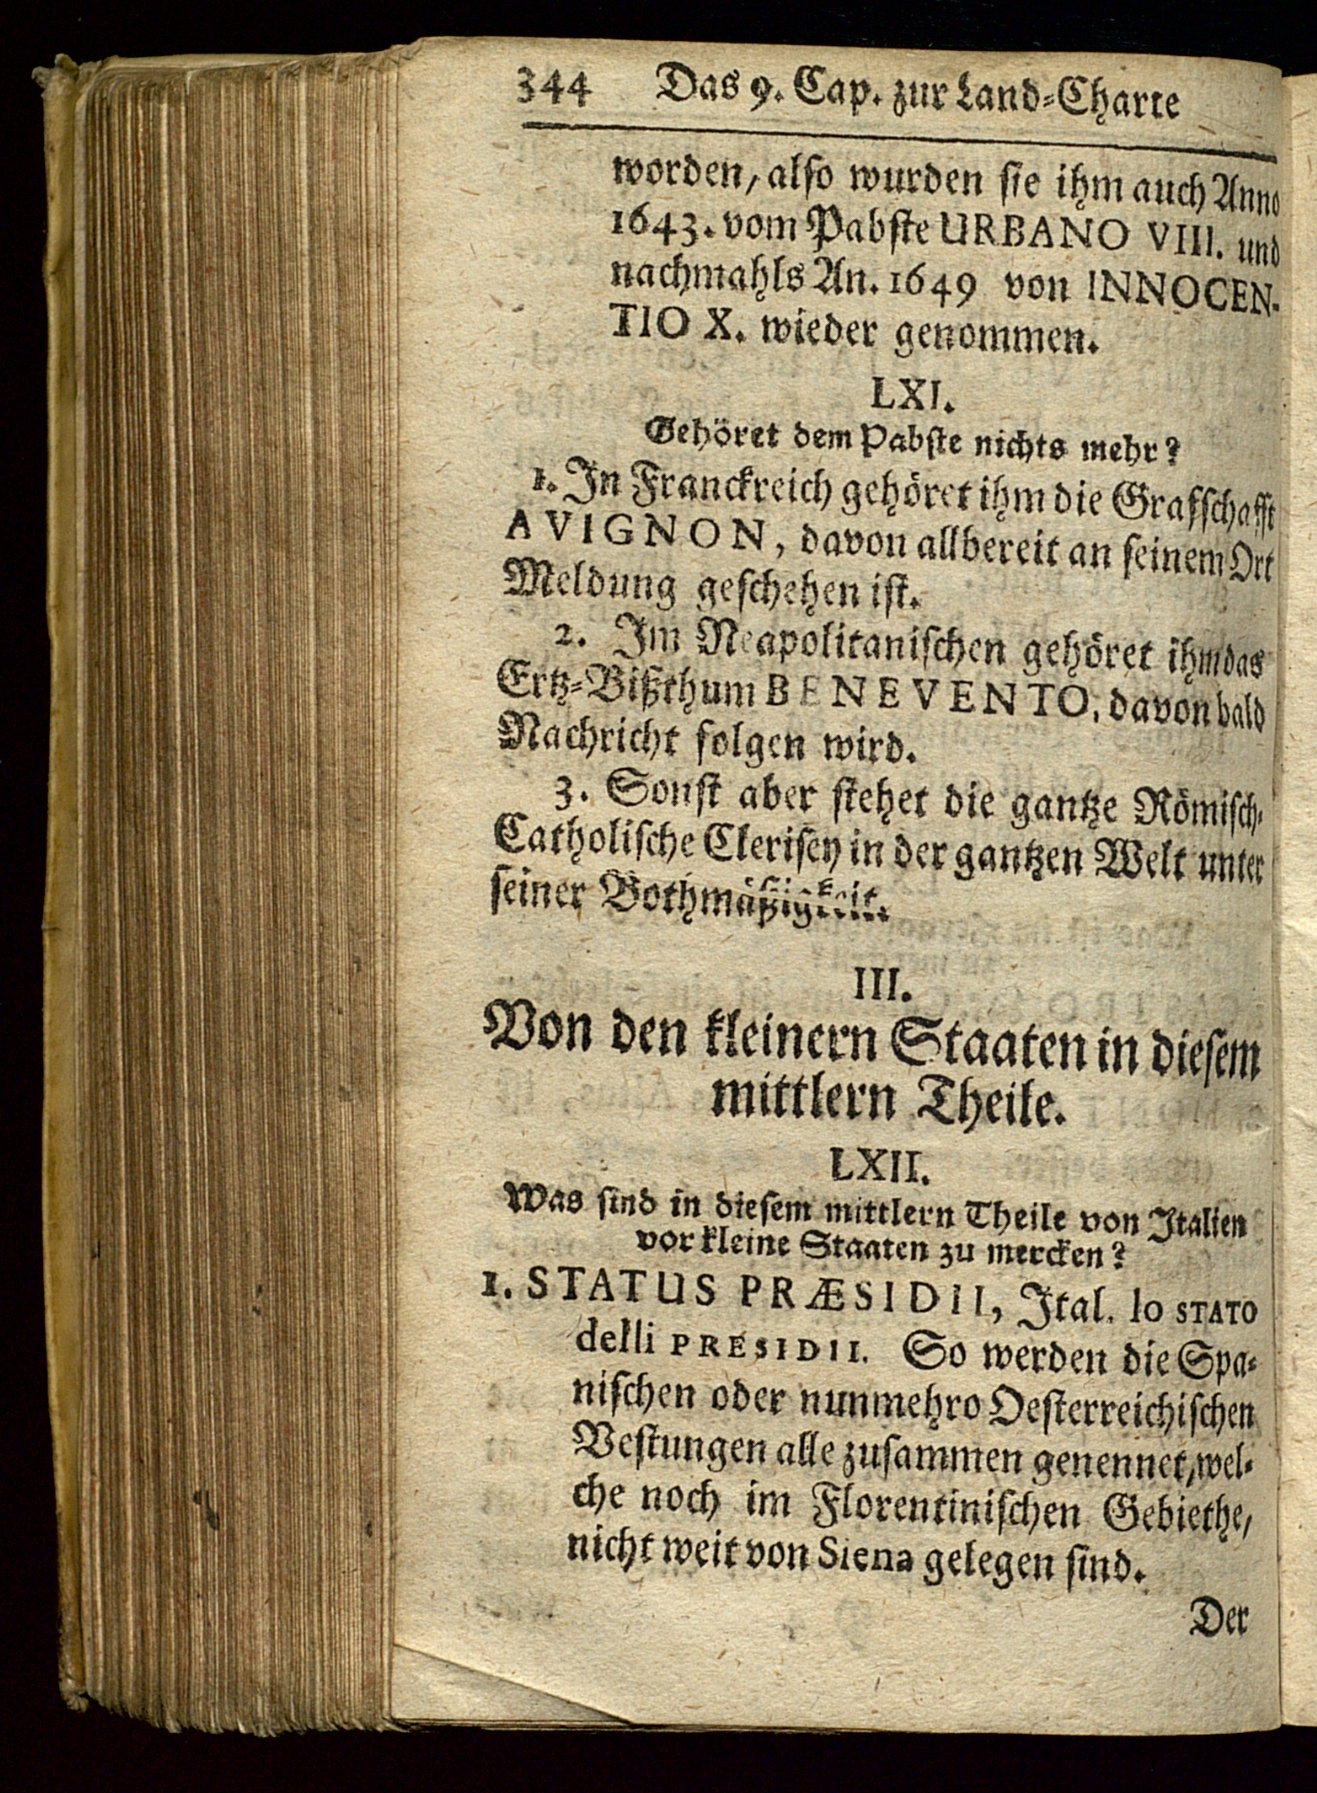 344 Das 9. Cap. zur Land-Charte
worden, also wurden sie ihm auch Anno
1643. vom Pabste URBANO VIII. und
nachmahls An. 1649 von INNOCEN-
TIO X. wieder genommen.
LXI.
Gehöret dem Pabste nichts mehr?
1. In Franckreich gehöret ihm die Grafschafft
AVIGNON, davon allbereit an seinem Ort
Meldung geschehen ist.
2. Im Neapolitanischen gehöret ihm das
Ertz-Bißthum BENEVENTO, davon bald
Nachricht folgen wird.
3. Sonst aber stehet die gantze Römisch-
Catholische Clerisey in der gantzen Welt unter
seiner Bothmäßigkeit.
III.
Von den kleinern Staaten in diesem
mittlern Theile.
LXII.
Was sind in diesem mittlern Theile von Italien
vor kleine Staaten zu mercken?
1. STATUS PRÆSIDII, Ital. lo STATO
delli PRESIDII. So werden die Spa-
nischen oder nunmehro Oesterreichischen
Vestungen alle zusammen genennet, wel-
che noch im Florentinischen Gebiethe,
nicht weit von Siena gelegen sind.
Der